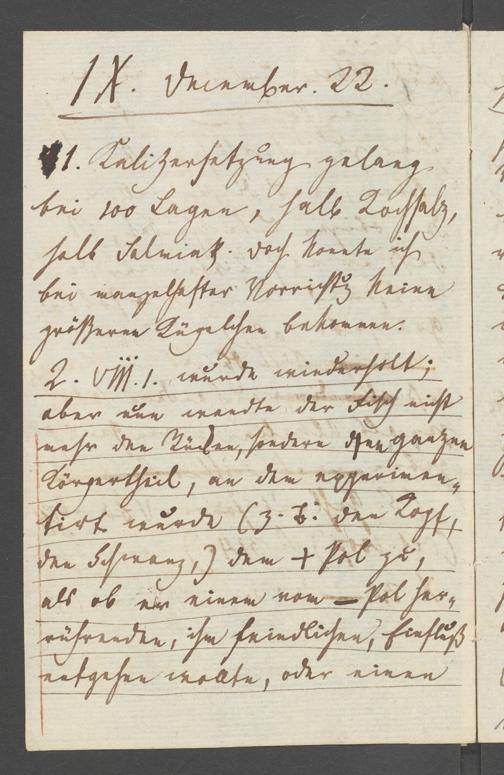 IX. December. 22.
1. Kalizersetzung gelang
bei 100 Lagen, halb Kochsalz,
halb Salmiak. Doch konnte ich
bei mangelhafter Vorrichtg keine
größeren Kügelchen bekommen.
2. VIII. 1. wurde wiederholt;
aber nun wandte der Fisch nicht
mehr den Rücken, sondern den ganzen
Körpertheil, an dem experimen-
tirt wurde (z. B. den Kopf,
den Schwanz,) dem + Pol zu,
als ob er einem vom – Pol her-
rührenden, ihm feindlichen, Einfluß
entgehen wollte, oder einen